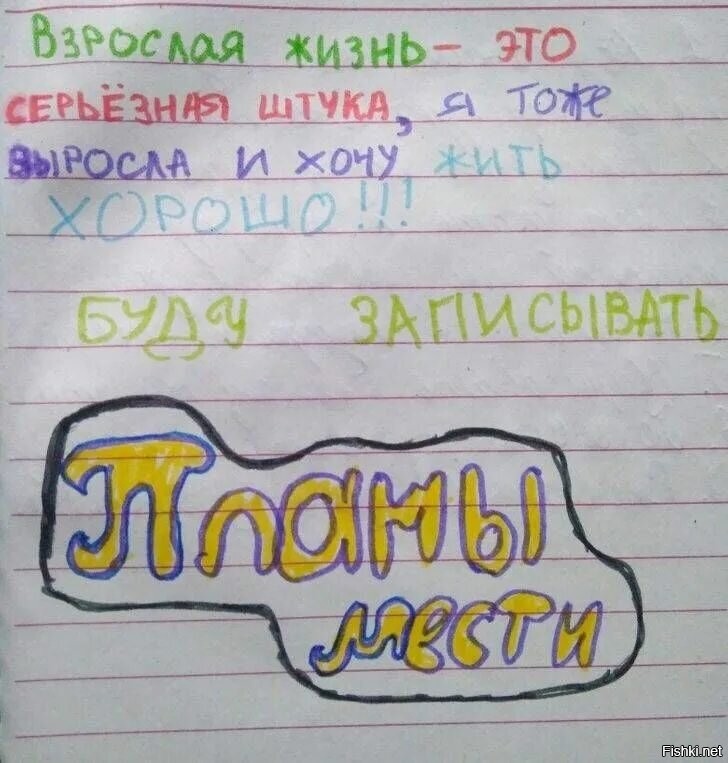 Взрослая жизнь – это
серьёзная штука, я тоже
выросла и хочу жить
хорошо!!!
Буду записывать
Планы
мести
Fishki.net